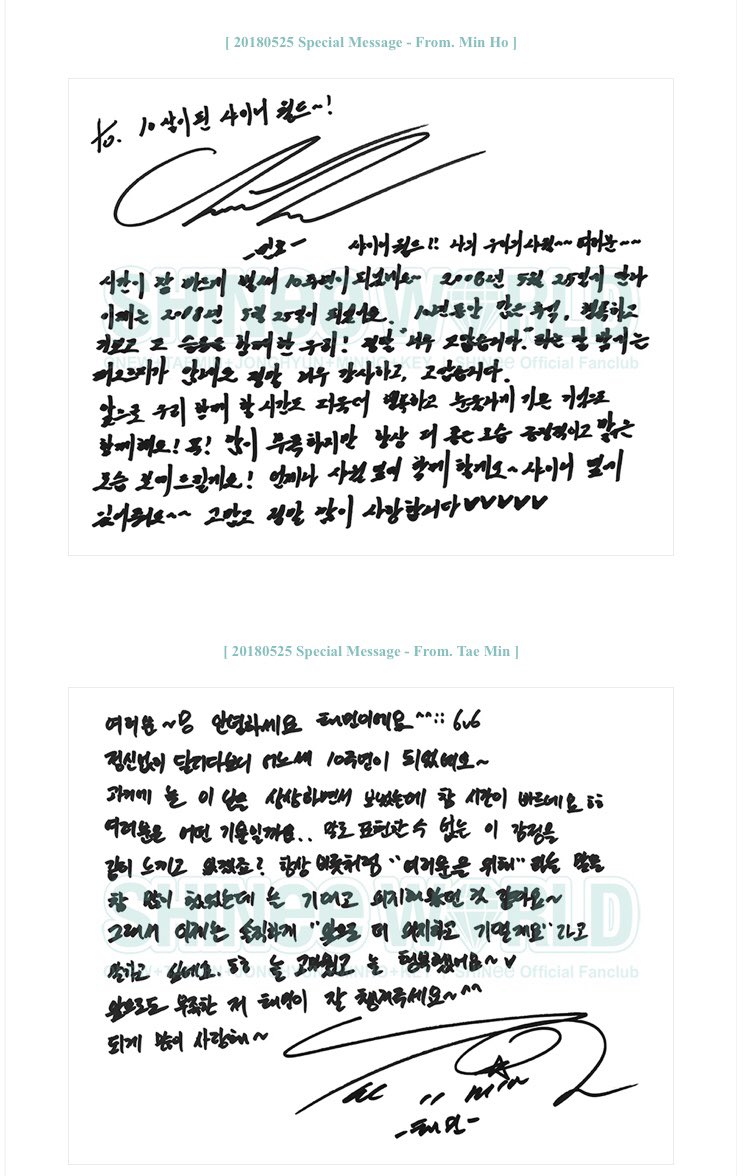 [ 20180525 Special Message - From. Min Ho ]
to. 10살이 된 샤이니 월드~!
-민호-
샤이니 월드!! 나의 우리의 사랑~~ 여러분~~
시간이 참 빠르게 벌써 10주년이 되었네요~ 2008년 5월 25일이 한라
이제는 2018년 5월 25일이 되었어요. 10년동안 많은 추억, 행복하고
기쁘고 또 슬픔을 함께한 우리! 정말 "너무 고맙습니다." 라는 말 밖에는
떠오르지가 않네요 정말 너무 감사하고, 고맙습니다.
앞으로 우리 함께 할 시간도 더욱더 행복하고 눈물나게 기쁜 기억으로
함께해요! 또! 많이 부족하지만 항상 더 좋은 모습 긍정적이고 밝은
모습 보여드릴게요! 언제나 사랑 보여 함께 할게요~ 샤이니 옆에
있어줘요~~ 고맙고 정말 많이 사랑합니다♥♥♥♥♥
SHINee WORLD
ONEW+TAEMIN+JONGHYUN+MINHO+KEY SHINee Official Fanclub
[ 20180525 Special Message - From. Tae Min ]
여러분~ 안녕하세요 태민이에요^^:: 6v6
정신없이 달리다보니 어느새 10주년이 되었네요~
과거에 늘 이 날을 상상하면서 보냈는데 참 시간이 빠르네요ㅎㅎ
여러분은 어떤 기분일까요.. 말로 표현할 수 없는 이 감정을
같이 느끼고 있겠죠? 항상 버릇처럼 "여러분을 위해" 라는 말을
참 많이 했었는데 늘 기대고 의지해왔던 것 같아요~
그래서 이제는 솔직하게 "앞으로 더 의지하고 기댈게요" 라고
말하고 싶네요. 또한 늘 고마웠고 늘 행복했어요~♥
앞으로도 부족한 저 태민이 잘 챙겨주세요~^^
되게 많이 사랑해~
-태민-
SHINee WORLD
ONEW+TAEMIN+JONGHYUN+MINHO+KEY SHINee Official Fanclub